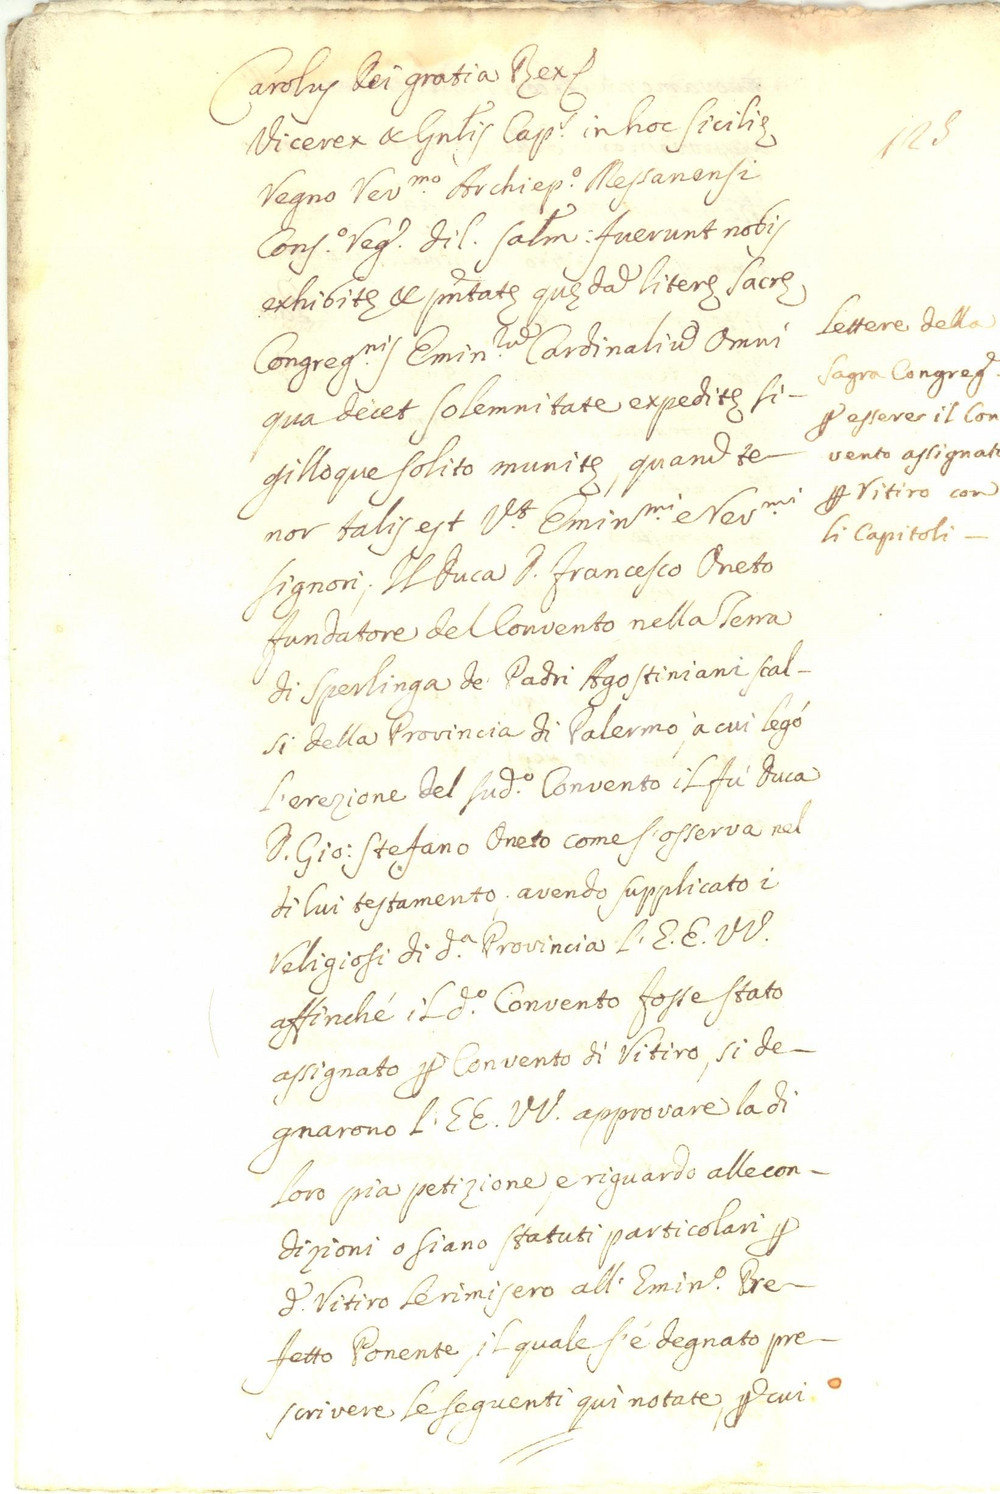 Carolus Dei gratia Rex
Vicerex & Gnlis Cap.s in hoc Sicilię
Regno Rev.mo Archiep.o Messanensi
Cons.o Reg. dil. salm: fuerunt nobis
exhibitę & pntatę quędā literę Sacrę
Congreg.nis Emin.rū Cardinaliū Omni
qua decet solemnitate expeditę si-
gilloque solito munitę, quarū te-
nor talis est Vt Emin.mi e Rev.mi
Signori, Il Duca D. Francesco Oneto
fundatore del Convento nella Terra
di Sperlinga de Padri Agostiniani Scal-
si della Provincia di Palermo, à cui legó
l'erezione del sud.o Convento il fù Duca
D. Gio: Stefano Oneto come s'osserva nel
di lui testamento, avendo supplicato i
Religiosi di d.a Provincia l'E.E.VV.
affinché il d.o Convento fosse stato
assignato p Convento di Ritiro, si de-
gnarono l'EE.VV. approvare la di
loro pia petizione, e riguardo alle con-
dizioni o siano statuti particolari p
d. Ritiro le rimisero all'Emin.o Pre-
fetto Ponente, il quale s'é degnato pre-
scrivere le seguenti qui notate, p cui
125
Lettere della
Sagra Congreg.
p essere il Con
vento assignato
p Ritiro con
li Capitoli -